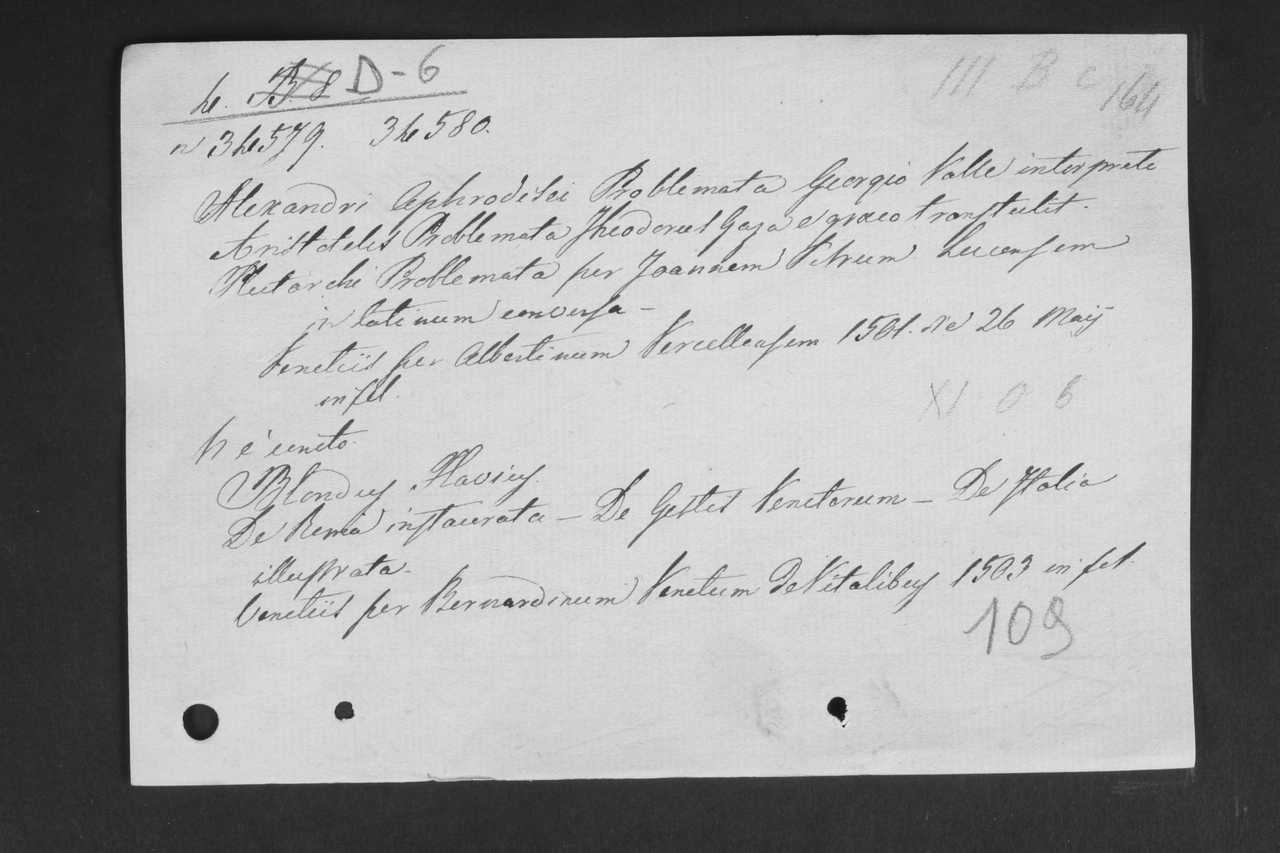 D-6
III B c 164
Alexandri Aphrodisei Problemata Georgio Valle interprete
Aristotelis Problemata Theodorus Gaza e greco transtulit.
Plutarchi Problemata per Joannem Petrum Lucensem
in latinum conversa -
Venetiis per Albertinum Vercellensem 1501. Die 26 Maij
in fol.
XI O 6
h è unito
Blondus Flavius.
De Roma instaurata - De Gestis Venetorum - De Italia
illustrata.
Venetiis per Bernardinum Venetum de Vitalibus 1503 in fol.
109